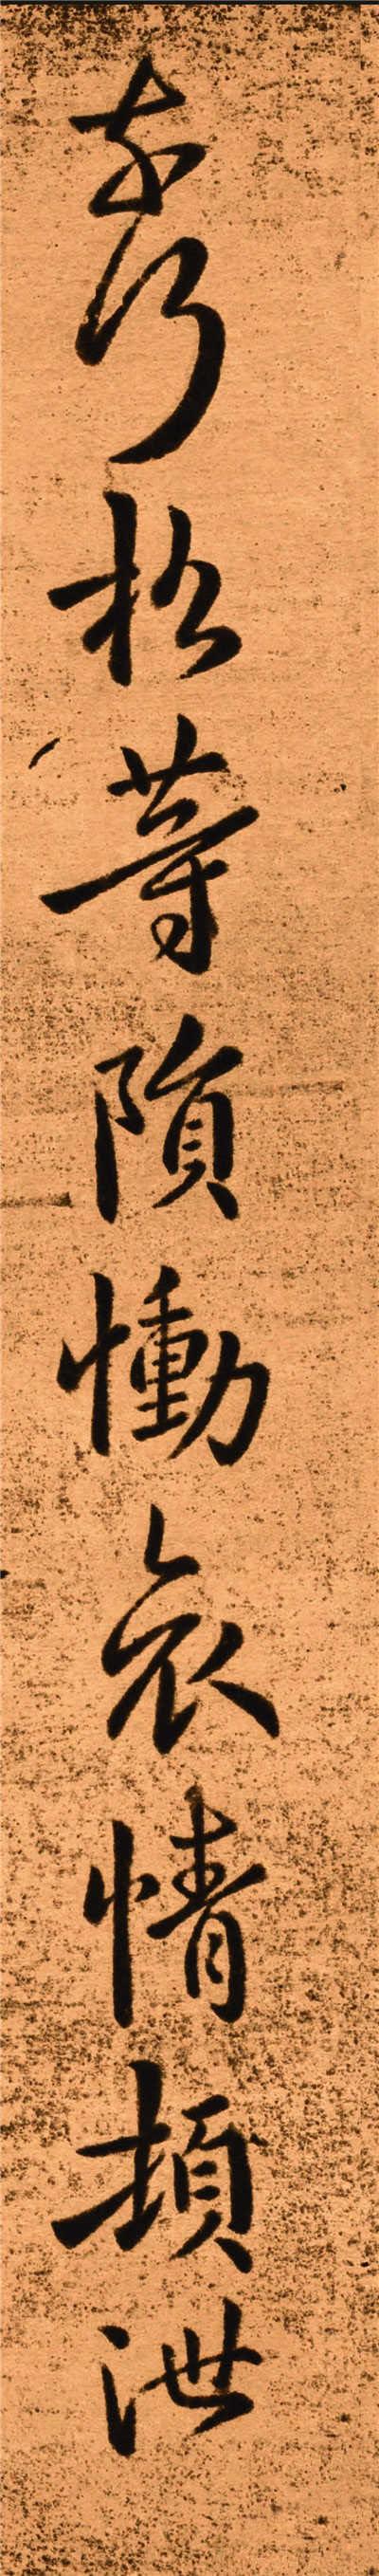 奈何松等隕慟哀情頓泄